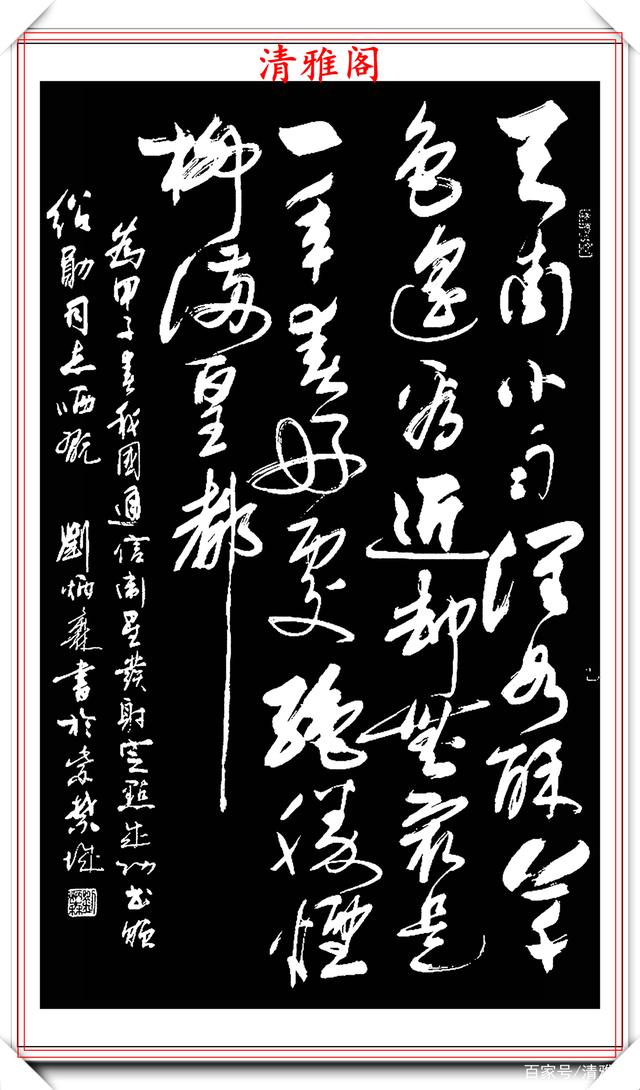 清雅阁
天街小雨潤如酥草
色遙看近却無最是
一年春好處絕勝煙
柳滿皇都
為甲子春我國通信衛星發射定點成功書贈
紹勛同志哂翫 劉炳森書於紫禁城
百家号/清雅